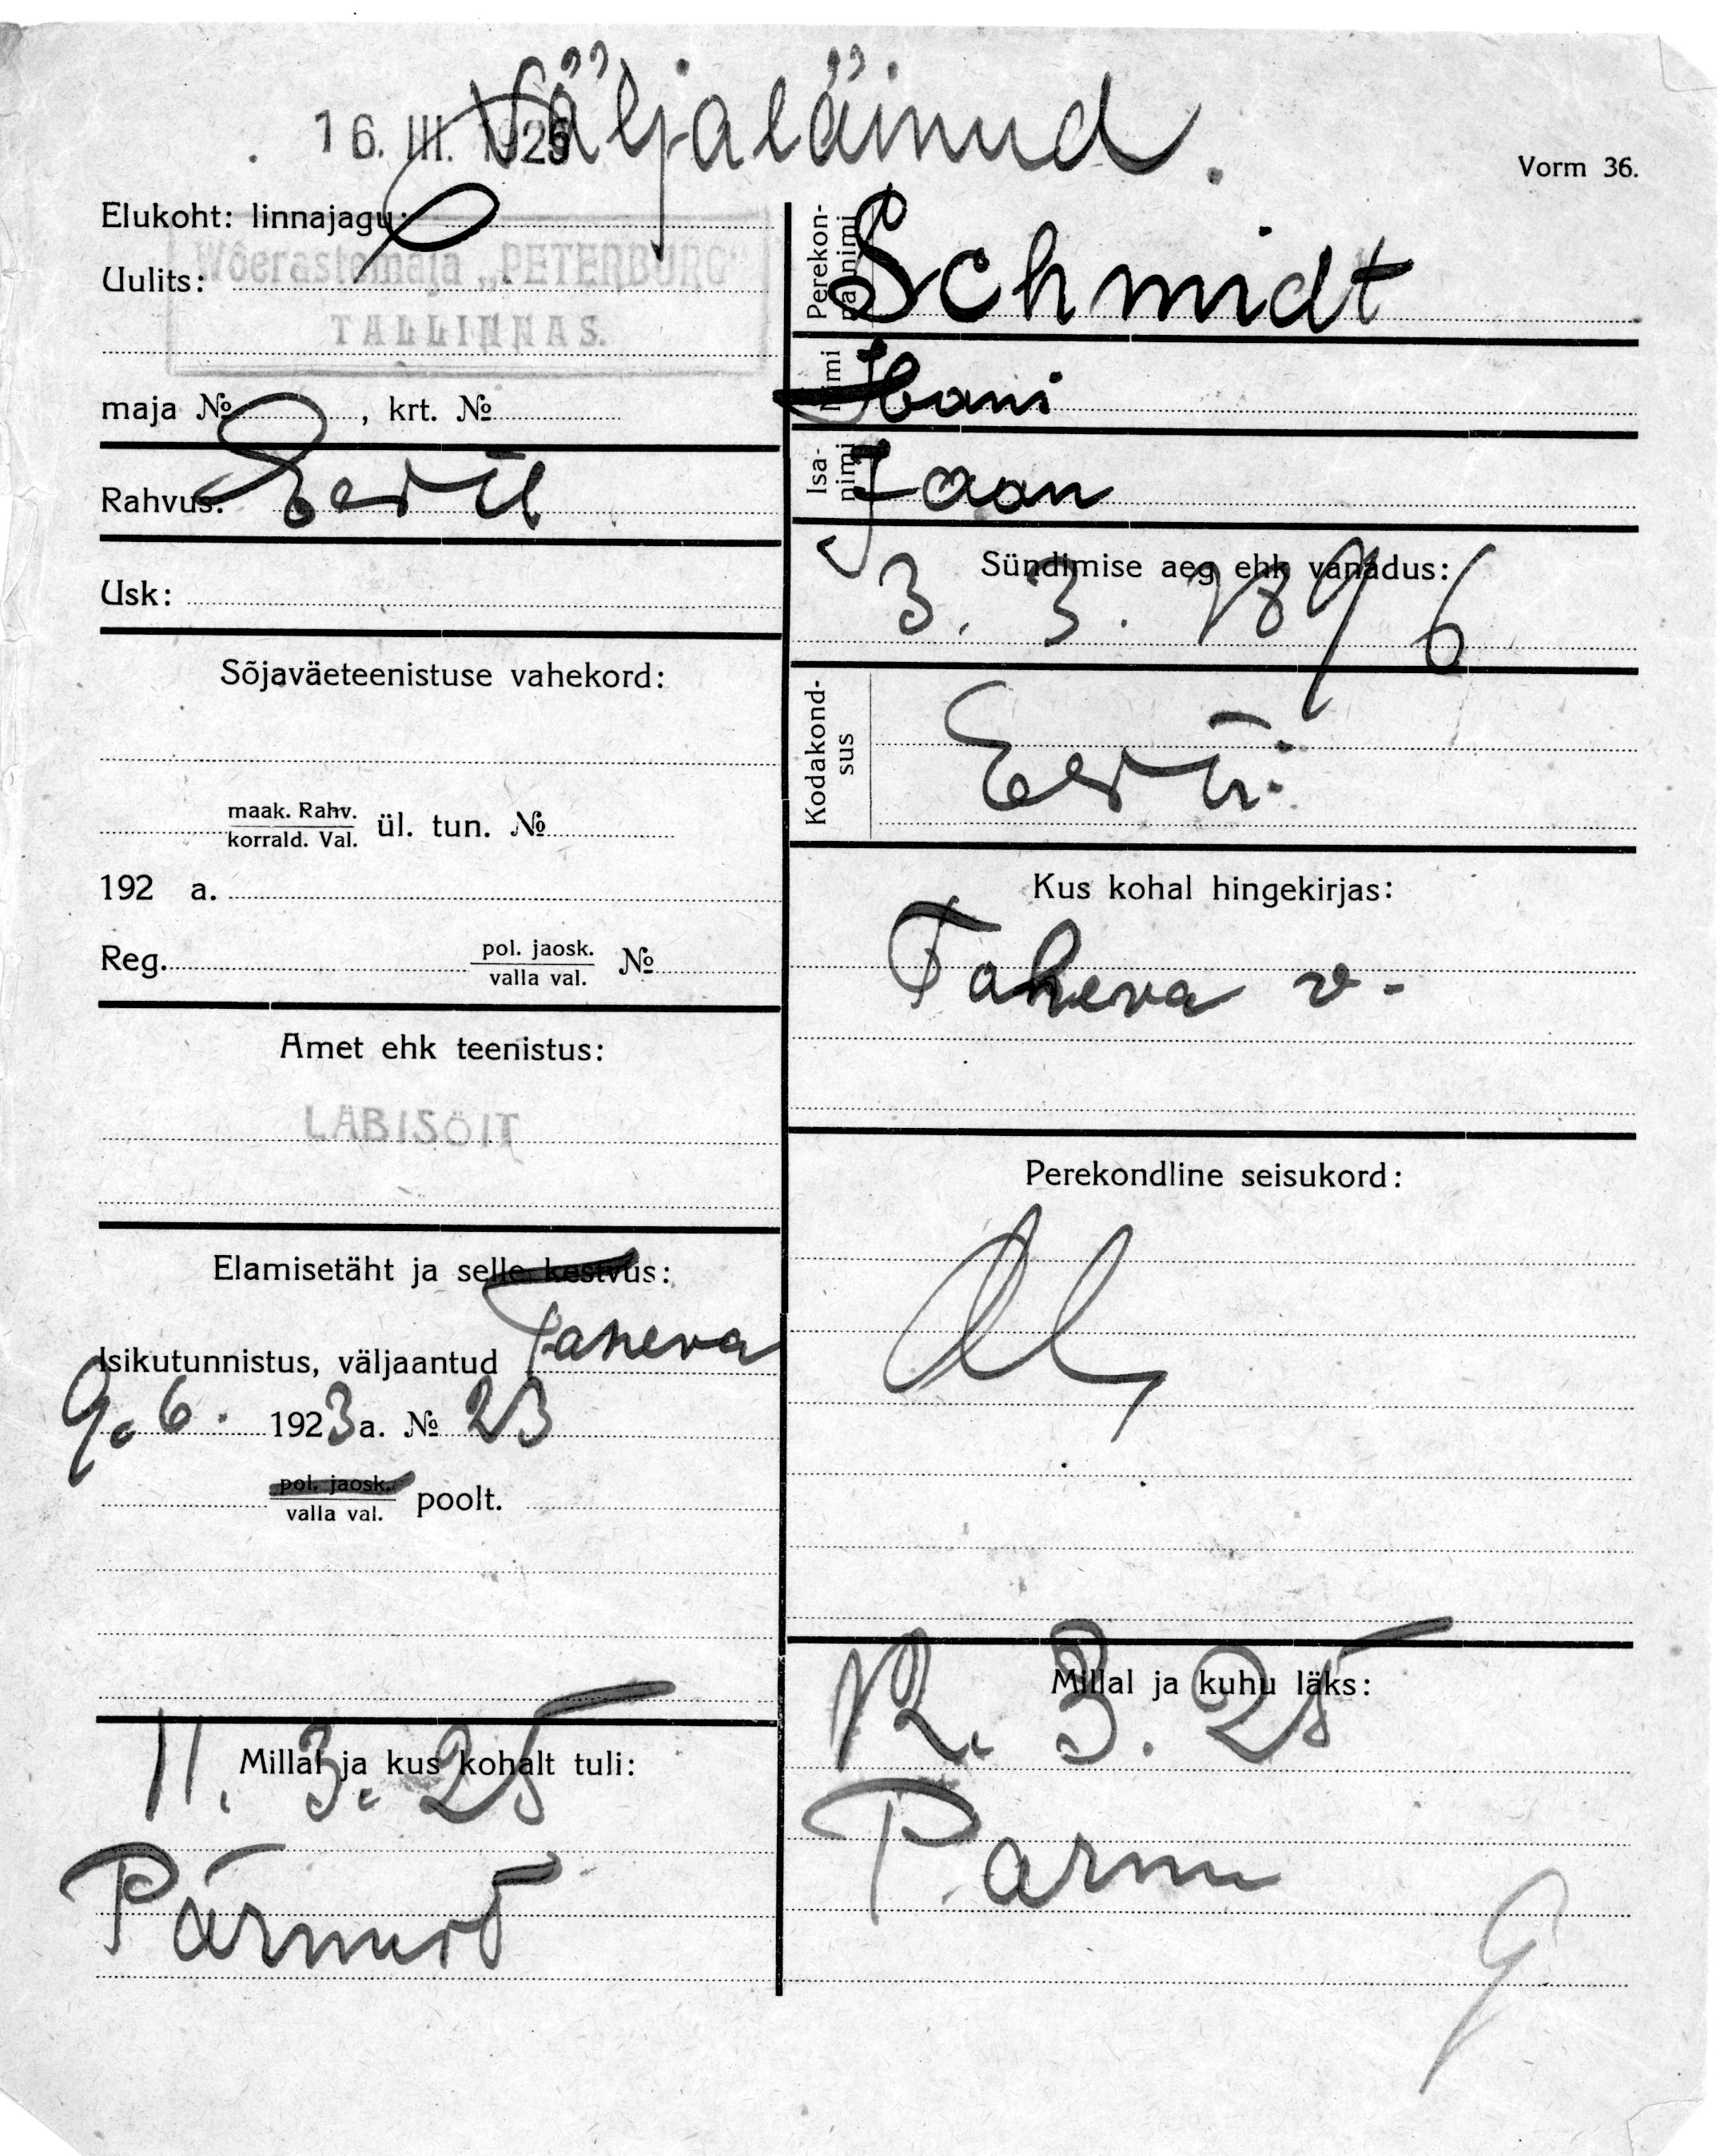 Väljaläinud.
16. III. 1925
Vorm 36.
Elukoht: linnajagu:
Wõerastemaja „PETERBURG"
Uulits:
TALLINNAS.
maja № , krt. №
Rahvus: Eesti
Usk:
Sõjaväeteenistuse vahekord:
maak. Rahv.
korrald. Val.
ül. tun. №
192 a.
Reg. pol. jaosk. №
valla val.
Amet ehk teenistus:
LÄBISÕIT
Elamisetäht ja selle kestvus:
Isikutunnistus, väljaantud Taheva
9. 6. 1923 a. № 23
pol. jaosk.
valla val.
poolt.
Millal ja kus kohalt tuli:
11. 3. 25
Pärnust
Perekon-
nanimi
Schmidt
Nimi
Isa-
nimi
Jaan
Sündimise aeg ehk vanadus:
3. 3. 1896
Kodakond-
sus
Eesti
Kus kohal hingekirjas:
Taheva v.
Perekondline seisukord:
Millal ja kuhu läks:
12. 3. 25
Pärnu